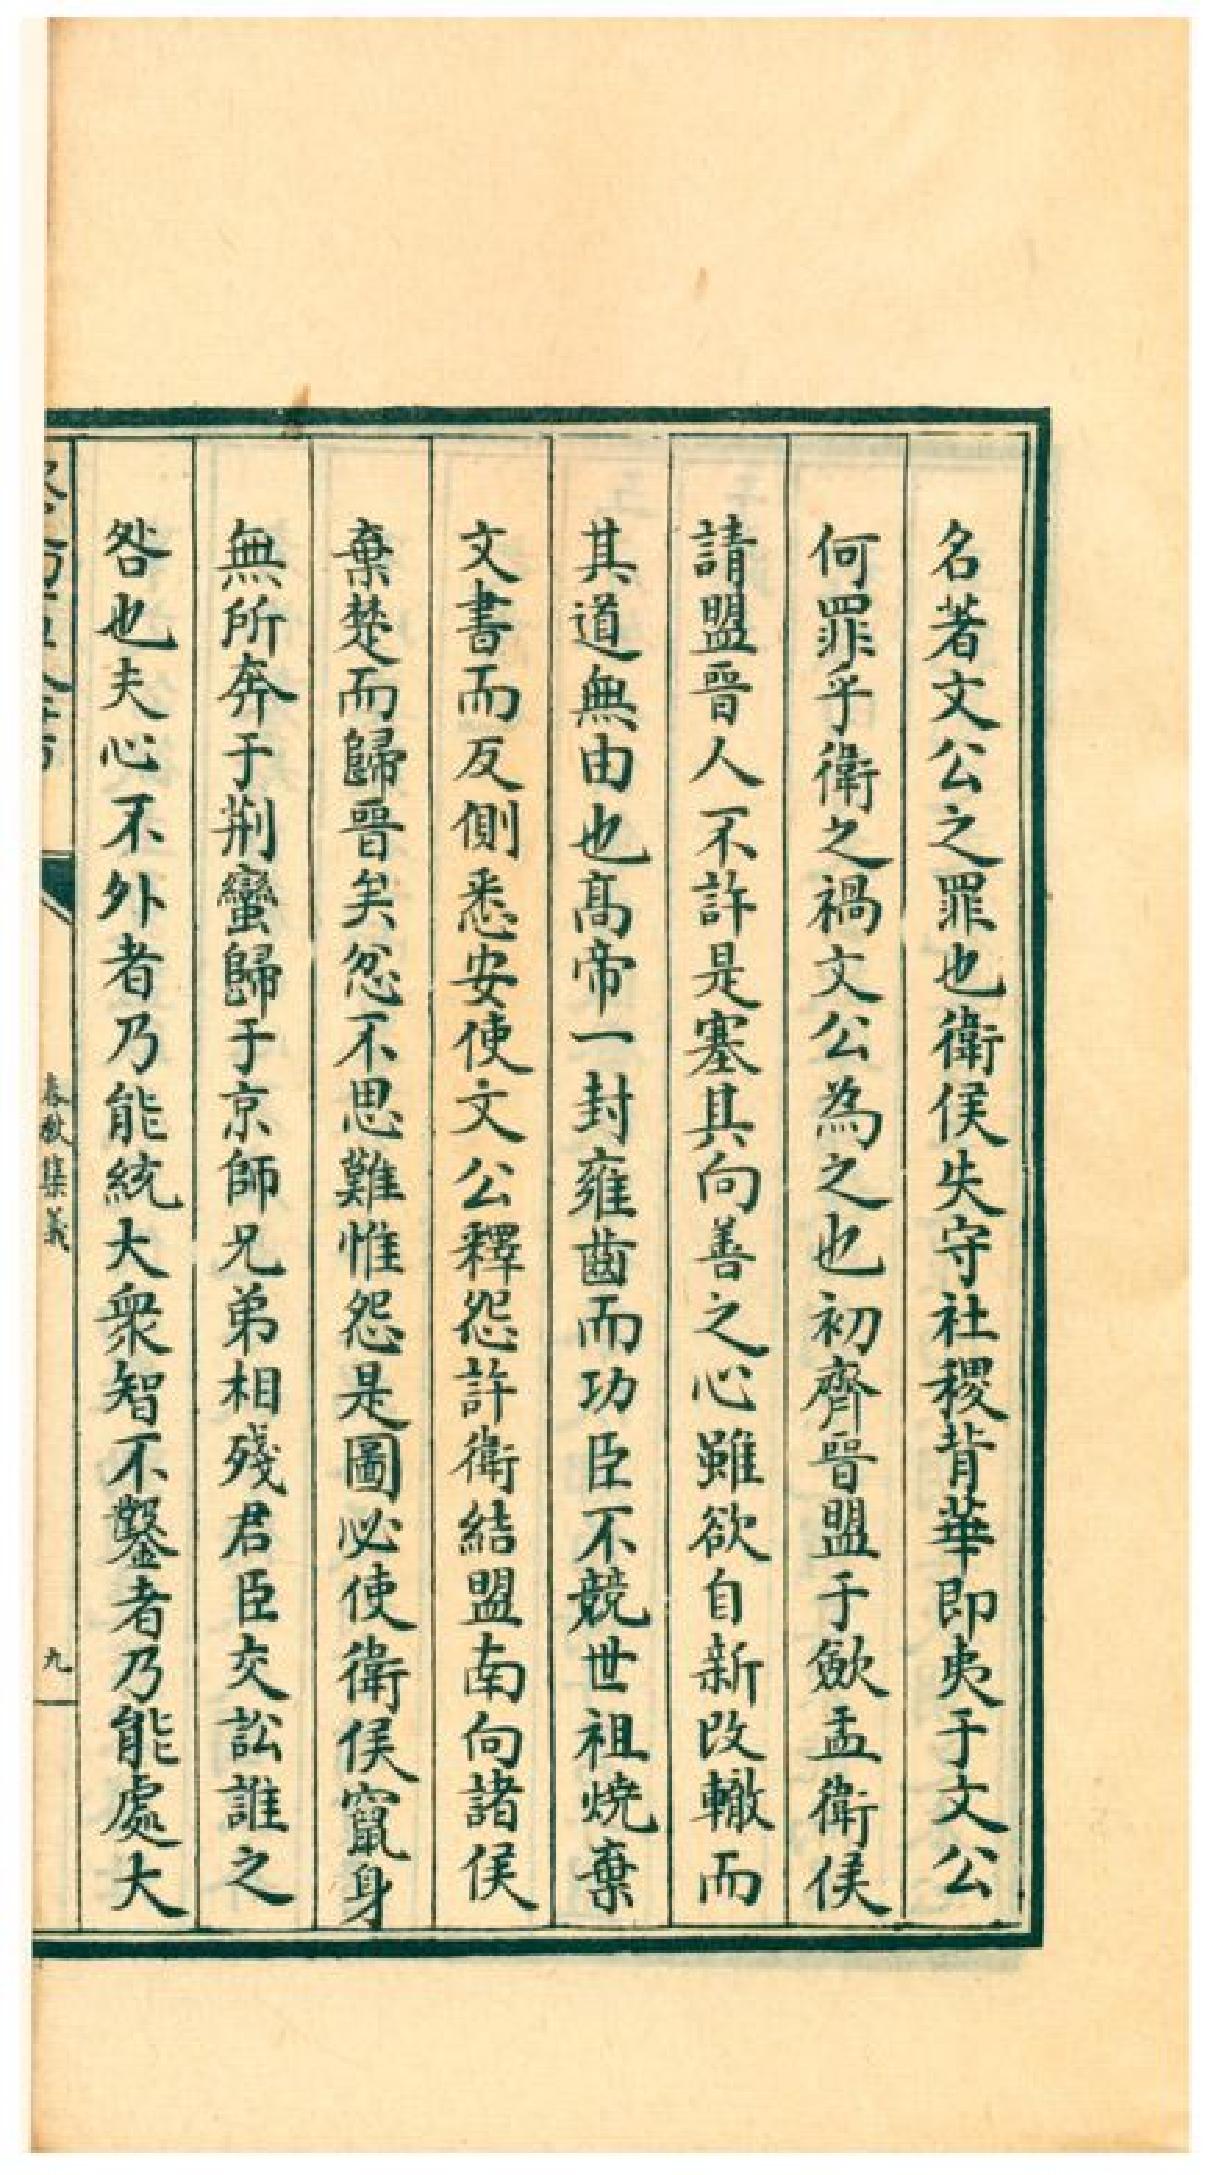 名著文公之罪也衛侯失守社稷背華即夷于文公
何罪乎衛之禍文公為之也初齊晉盟于斂盂衛侯
請盟晉人不許是塞其向善之心雖欲自新改轍而
其道無由也髙帝一封雍齒而功臣不競世祖燒棄
文書而反側悉安使文公釋怨許衛結盟南向諸侯
棄楚而歸晉矣忿不思難惟怨是圖必使衛侯竄身
無所奔于荆蠻歸于京師兄弟相殘君臣交訟誰之
咎也夫心不外者乃能統大衆智不鑿者乃能處大
春秋集義
九